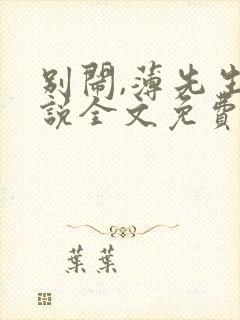 別鬧,薄先生
說全文免費
葉葉